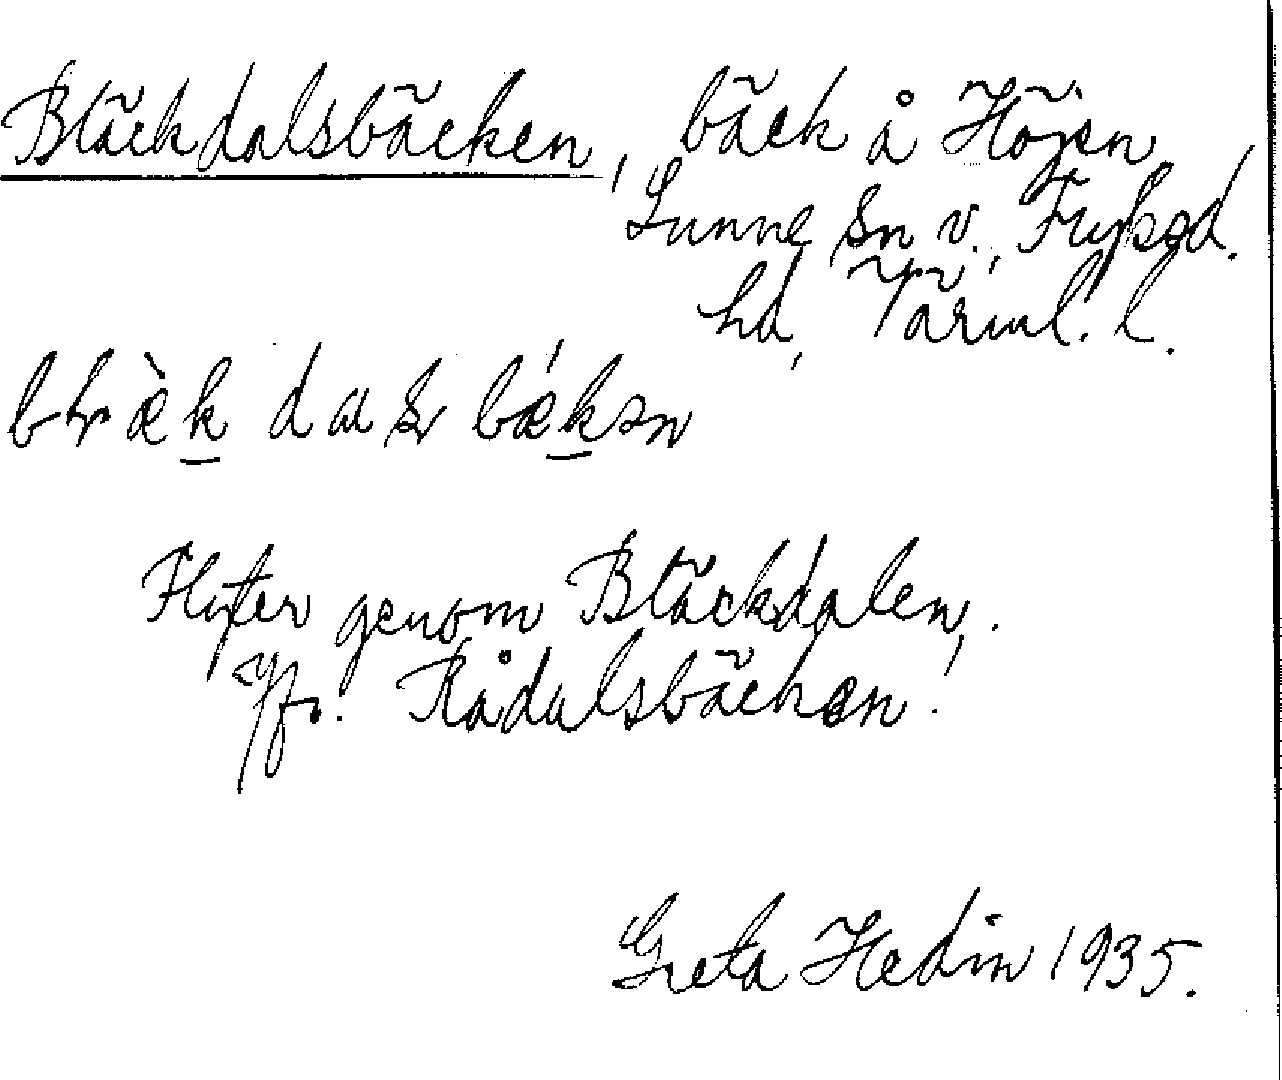 Bläckdalsbäcken, bäck å Höjen,
Sunne sn v., Fryksd.
hd, Värml. l.
dals bækən
Flyter genom Bläckdalen.
Jfr. Rådalsbäcken!
Greta Hedin 1935.